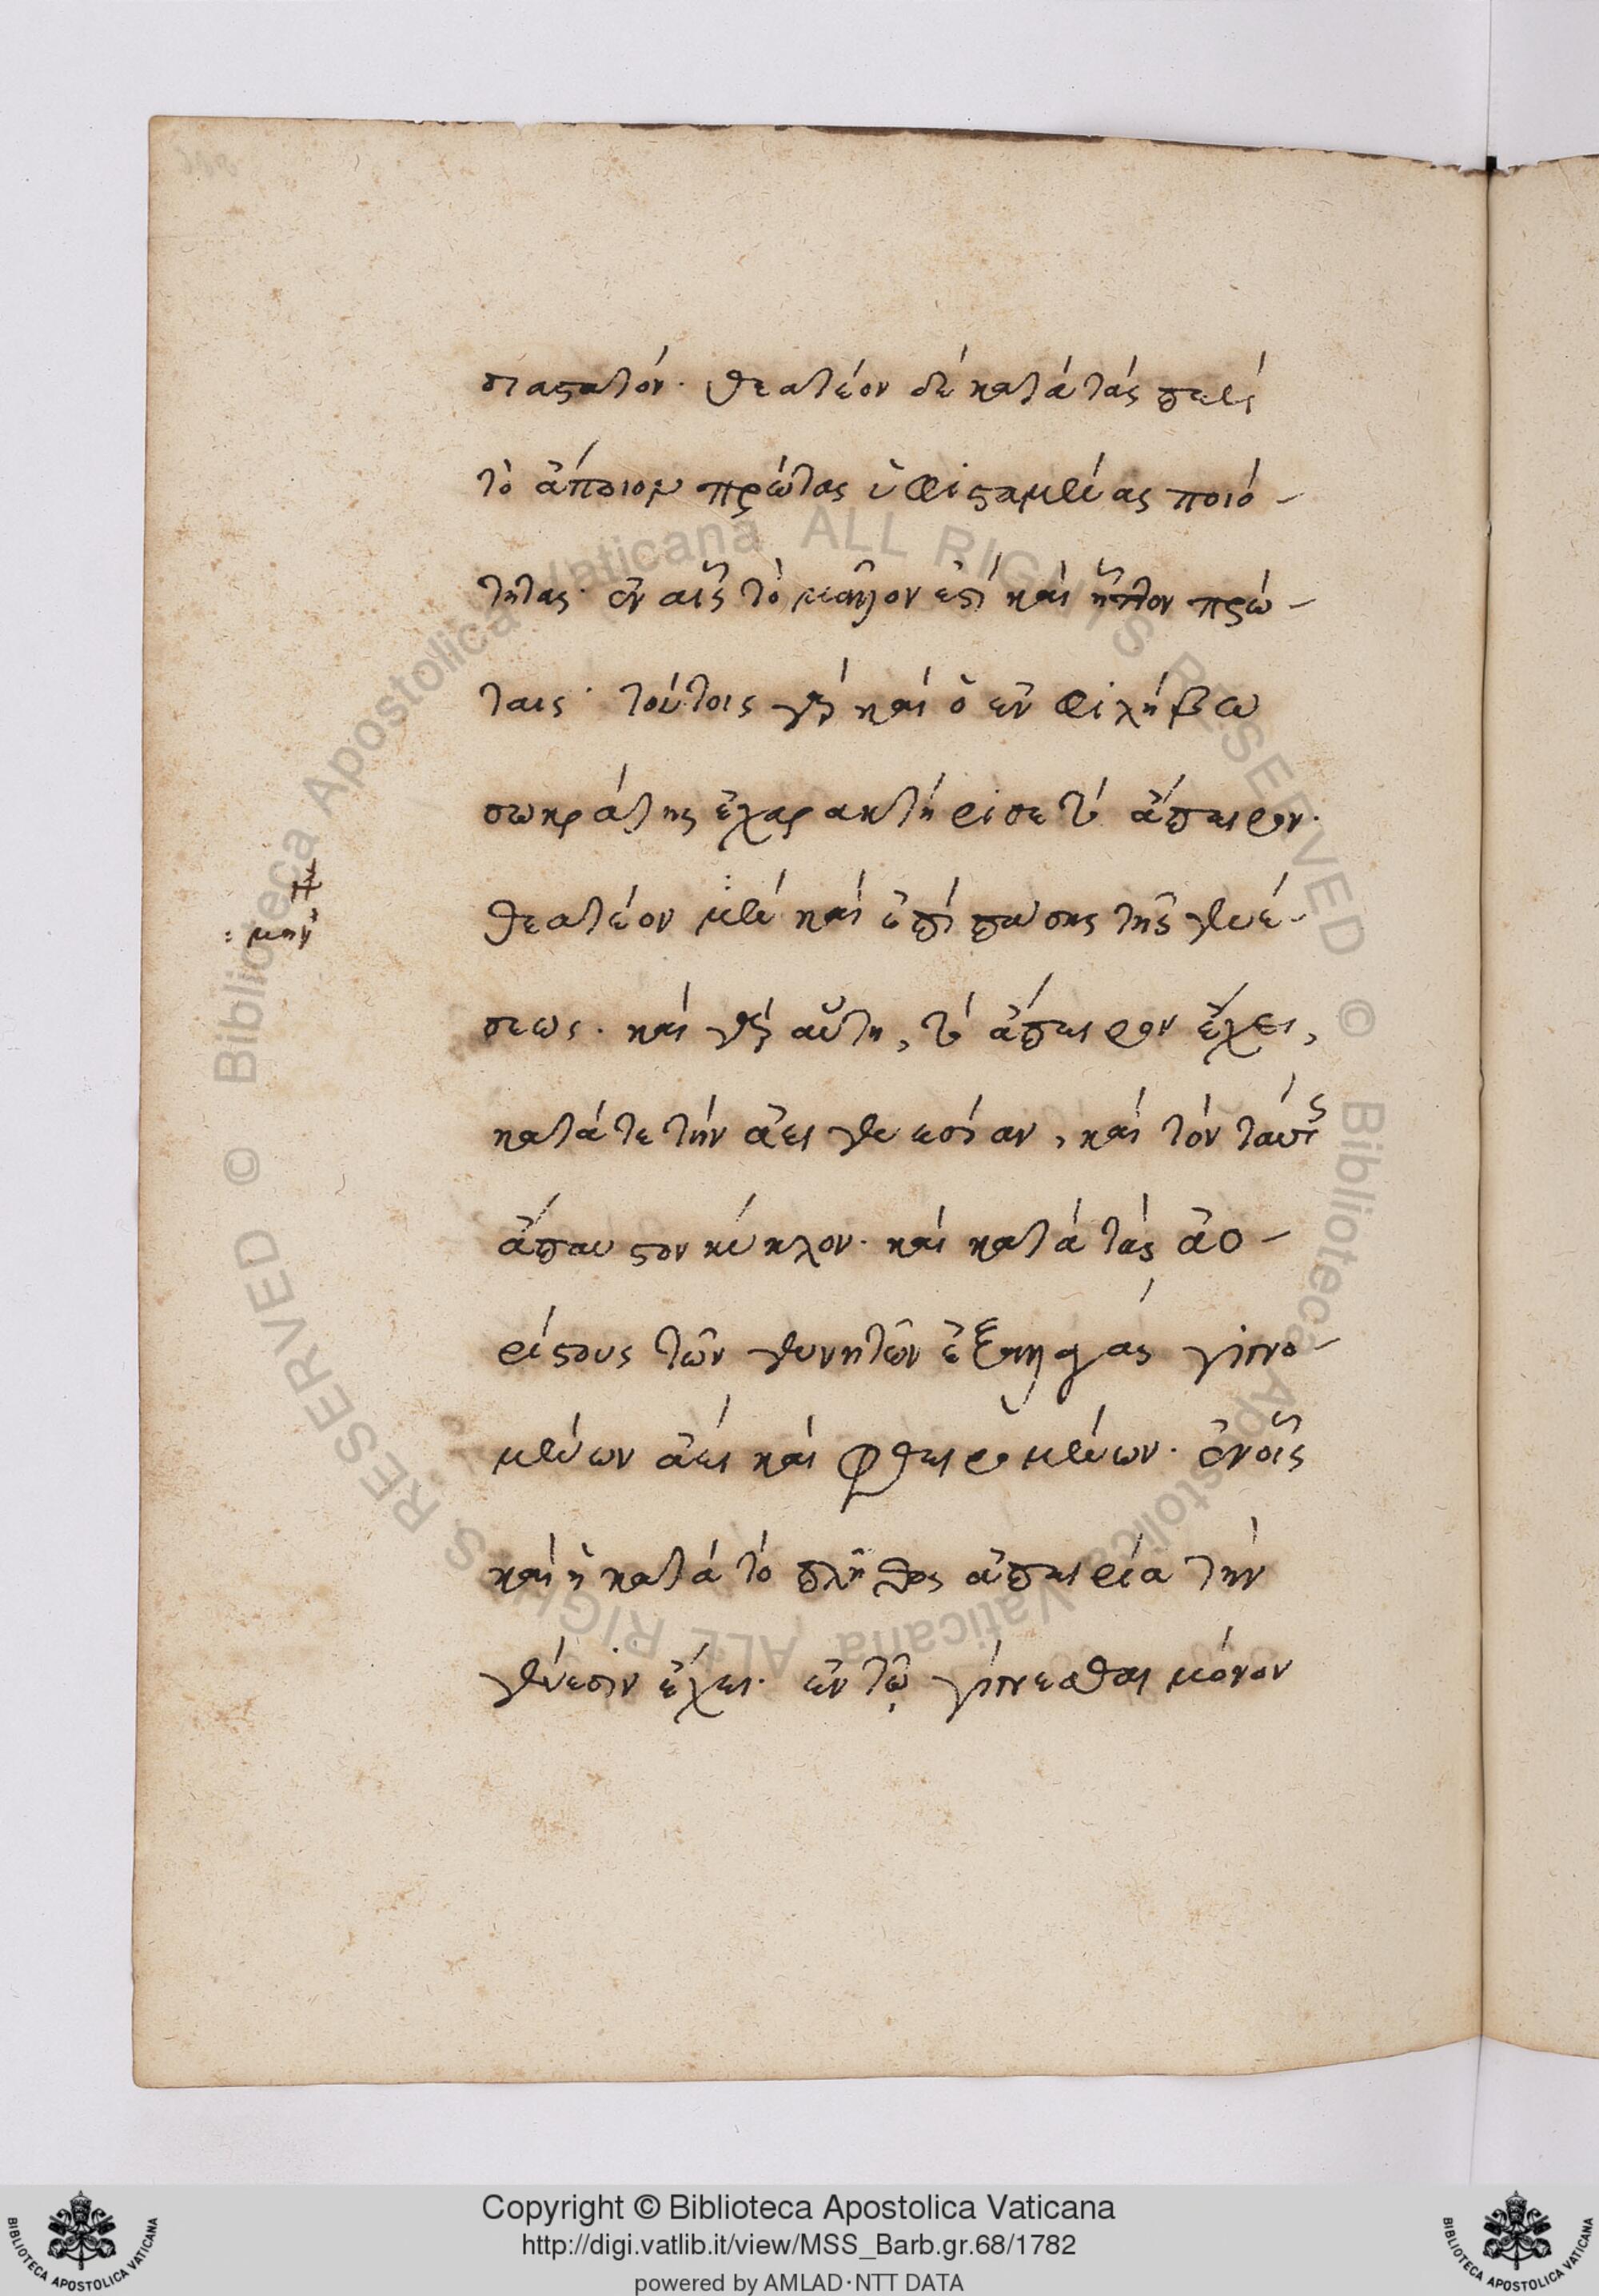 σιαστατόν. θεατέον δὲ κατὰ τὰς περὶ
τὸ ἄποιον πρώτας ὑφισταμένας ποιό-
τητας. ἐν αἷς τὸ μᾶλλον ἐστὶ καὶ ἧττον πρώ-
ταις. τούτοις γὰρ καὶ ὁ ἐν φιλήβω
σωκράτης ἐχαρακτήρισε τὸ ἄπειρον.
θεατέον μὲν καὶ ἐπὶ πάσης τῆς γενέ-
: μὴν
σεως. καὶ γὰρ αὕτη, τὸ ἄπειρον ἔχει,
κατά τε τὴν ἀειγενεσίαν, καὶ τὸν ταύτης
ἄπαυστον κύκλον. καὶ κατὰ τὰς ἀο-
ρίστους τῶν γεννητῶν ἐξαλλαγὰς γινο-
μένων ἀεὶ καὶ φθειρομένων. ἐν οἷς
καὶ ἡ κατὰ τὸ πλῆθος ἀπειρία τὴν
γένεσιν ἔχει. ἐν τῷ γίνεσθαι μόνον
Copyright © Biblioteca Apostolica Vaticana
http://digi.vatlib.it/view/MSS_Barb.gr.68/1782
powered by AMLAD·NTT DATA
BIBLIOTECA APOSTOLICA VATICANA
BIBLIOTECA APOSTOLICA VATICANA
© Biblioteca Apostolica Vaticana ALL RIGHTS RESERVED
© Biblioteca Apostolica Vaticana ALL RIGHTS RESERVED